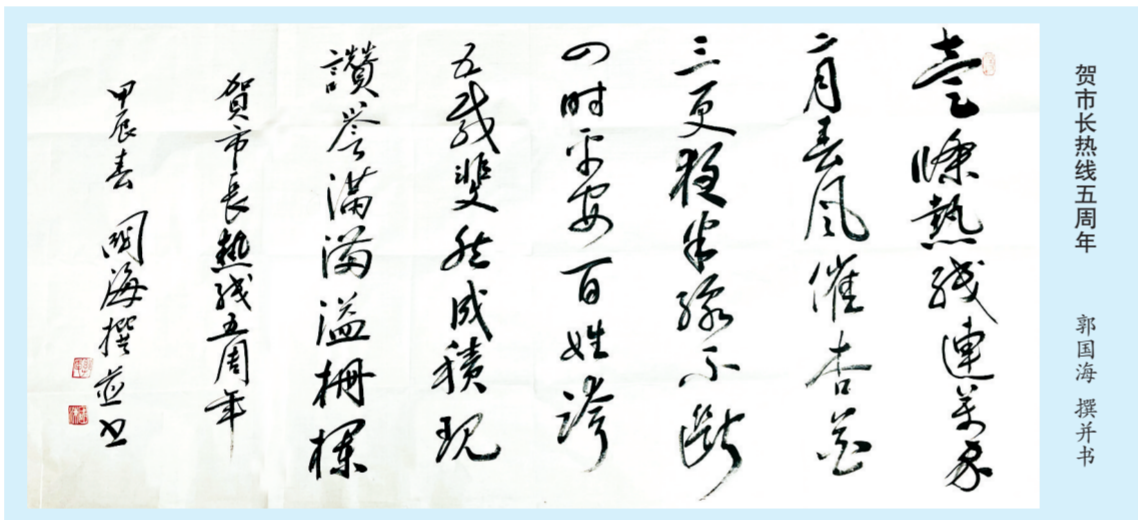 贺市长热线五周年
郭国海 撰并书
壹條熱綫連萬家
二月春風催杏花
三更夜半不斷
四时平安百姓誇
五載斐然成績現
讚譽滿滿溢栅欄
賀市長熱綫五周年
甲辰春 國海撰並书